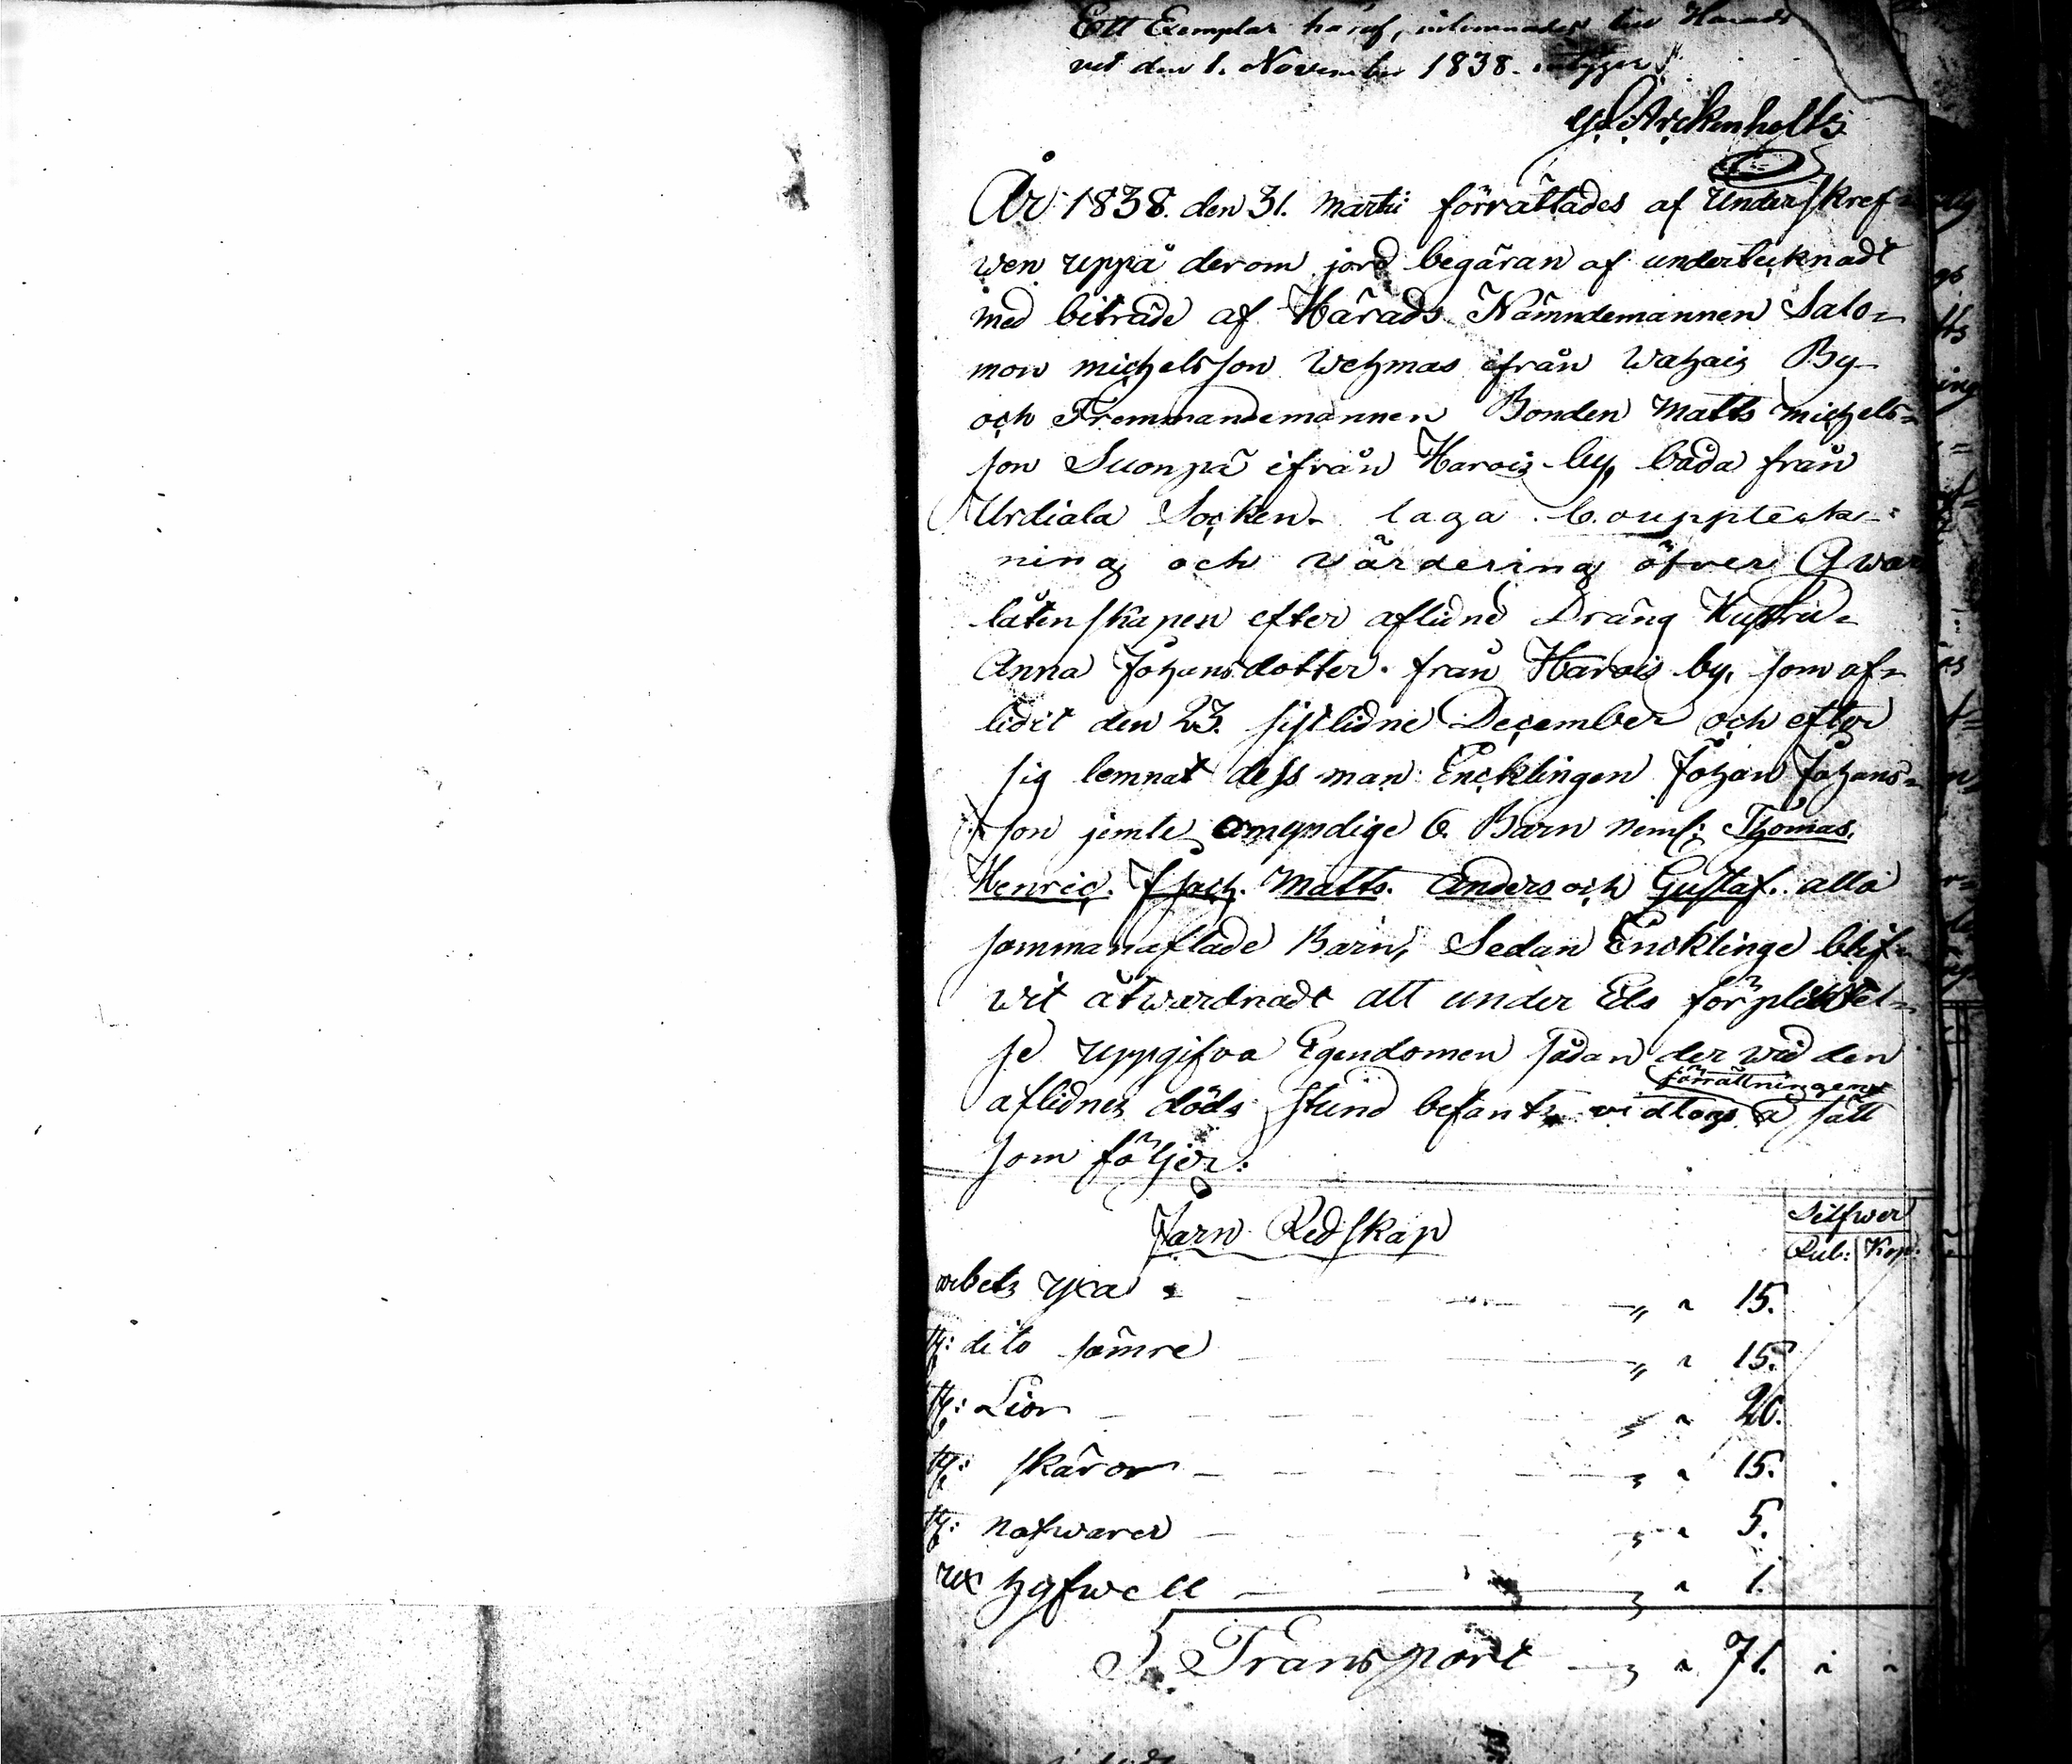 Ett Exemplar häraf, inlemnadt till Härads
den 1. November 1838. intygar
Arckenholtz
År 1838. den 31. Martii förrättades af Underskref-
wen uppå derom jord begäran af undertecknadt
med biträde af Härads Nämndemannen Salo-
mon michelsson Wehmas ifrån Wahais By
och Fremmandemannen Bonden Matts michels-
son Suonpä ifrån Harois by, båda från
Urdiala Socken. laga bouppteck-
ning och värdering öfver Qwar
låtenskapen efter aflidne Dräng Hustru
Anna Johansdotter från Harois by, som af-
lidit den 23. sistlidne December och efter
sig lemnat dess man Encklingen Johan Johans-
son jemte omyndige 6. Barn neml: Thomas.
Henric. Isach. Matts. Anders och Gustaf. alla
sammanaflade Barn, Sedan Encklinge blif-
wit åtwardnadt att under Eds förplicktel-
se uppgifva Egendomen sådan der wid den
förrättningen
aflidnes döds stund befants vidtogs å sätt
som följer:
Silfwer
Järn Redskap
Rub: Kop:
arbets yxa " " 15.
st: dito sämre " " 15.
st: Lior " " 20.
st: skäror " " 15.
st: nafwarer " " 5.
hyfwell " " 1.
S. Transport " " 71. " "